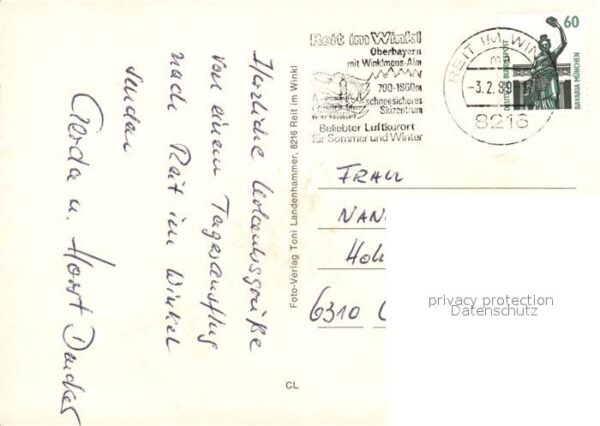 Herzliche Urlaubsgrüße
von einem Tagesausflug
nach Reit im Winkel
senden
Gerda u. Horst
Foto-Verlag Toni Landenhammer, 8216 Reit im Winkl
CL
Reit im Winkl
Oberbayern
mit Winklmoos-Alm
700-1860m
schneesicheres
Skizentrum
Beliebter Luftkurort
für Sommer und Winter
REIT IM WIN
-3.2.89
8216
60
DEUTSCHE BUNDESPOST
BAVARIA MÜNCHEN
FRAU
NAN
HOH
6310
privacy protection
Datenschutz